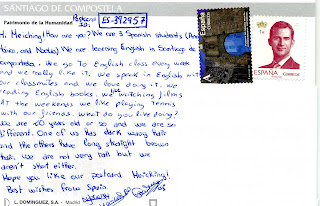 SANTIAGO DE COMPOSTELA
Patrimonio de la Humanidad
Postcard ID: ES-392957
Hi, Meiching! How are you? We are 3 Spanish students (An
and Nadia). We are learning English in Santiago de
Compostela. We go to English class every week
and we really like it. We speak in English with
our classmates and we love doing it. We
reading English books, watching films
At the weekends we like playing tennis
with our friends. What do you like doing?
We are 20 years old or so and we are so
different. One of us has dark wavy hair
and the others have long straight brown
hair. We are not very tall but we
aren't short either.
Hope you like our postcard Meiching!
Best wishes from Spain
ESPAÑA
CORREOS
L. DOMINGUEZ, S.A. - Madrid